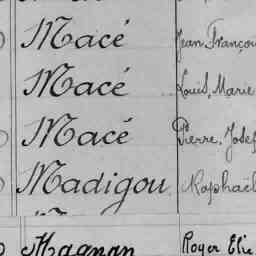 Macé Jean Françou
Macé Louis, Marie
Macé Pierre, Josef
Madigou Raphaël
Magnan Royer Elie